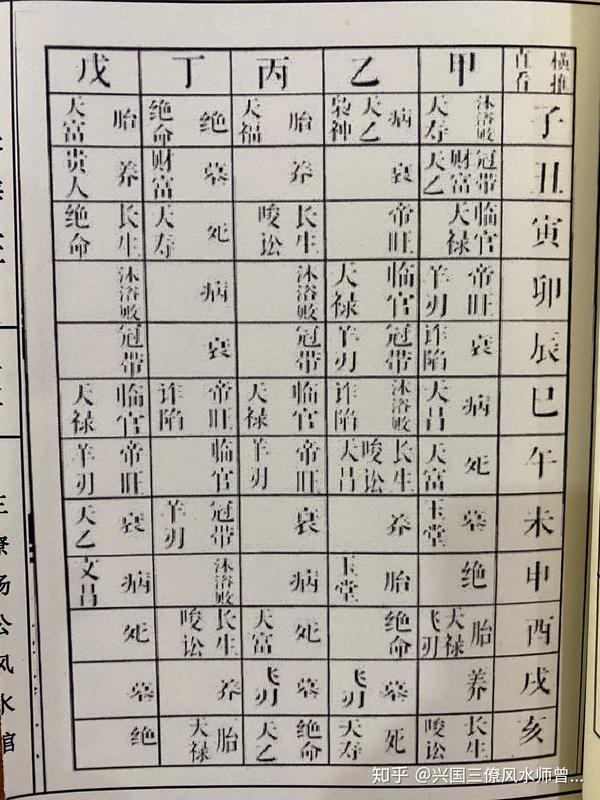 横推 直看 甲 乙 丙 丁 戊
子 沐浴败 天寿 病 天乙 枭神 胎 天福 绝 绝命 胎 天富
丑 冠带 财富 天乙 衰 养 墓 财富 养 贵人
寅 临官 天禄 帝旺 长生 唆讼 死 天寿 长生 绝命
卯 帝旺 羊刃 临官 天禄 沐浴败 病 沐浴败
辰 衰 诈陷 冠带 羊刃 冠带 衰 冠带
巳 病 天昌 沐浴败 诈陷 临官 天禄 帝旺 诈陷 临官 天禄
午 死 天富 长生 唆讼 天昌 帝旺 羊刃 临官 帝旺 羊刃
未 墓 玉堂 养 衰 冠带 羊刃 衰 天乙
申 绝 胎 玉堂 病 沐浴败 病 文昌
酉 胎 天禄 飞刃 绝命 死 天富 长生 唆讼 死
戌 养 墓 飞刃 墓 飞刃 养 墓
亥 长生 唆讼 死 天寿 绝命 天乙 胎 天禄 绝
杨公风水
知乎 @兴国三僚风水师曾...